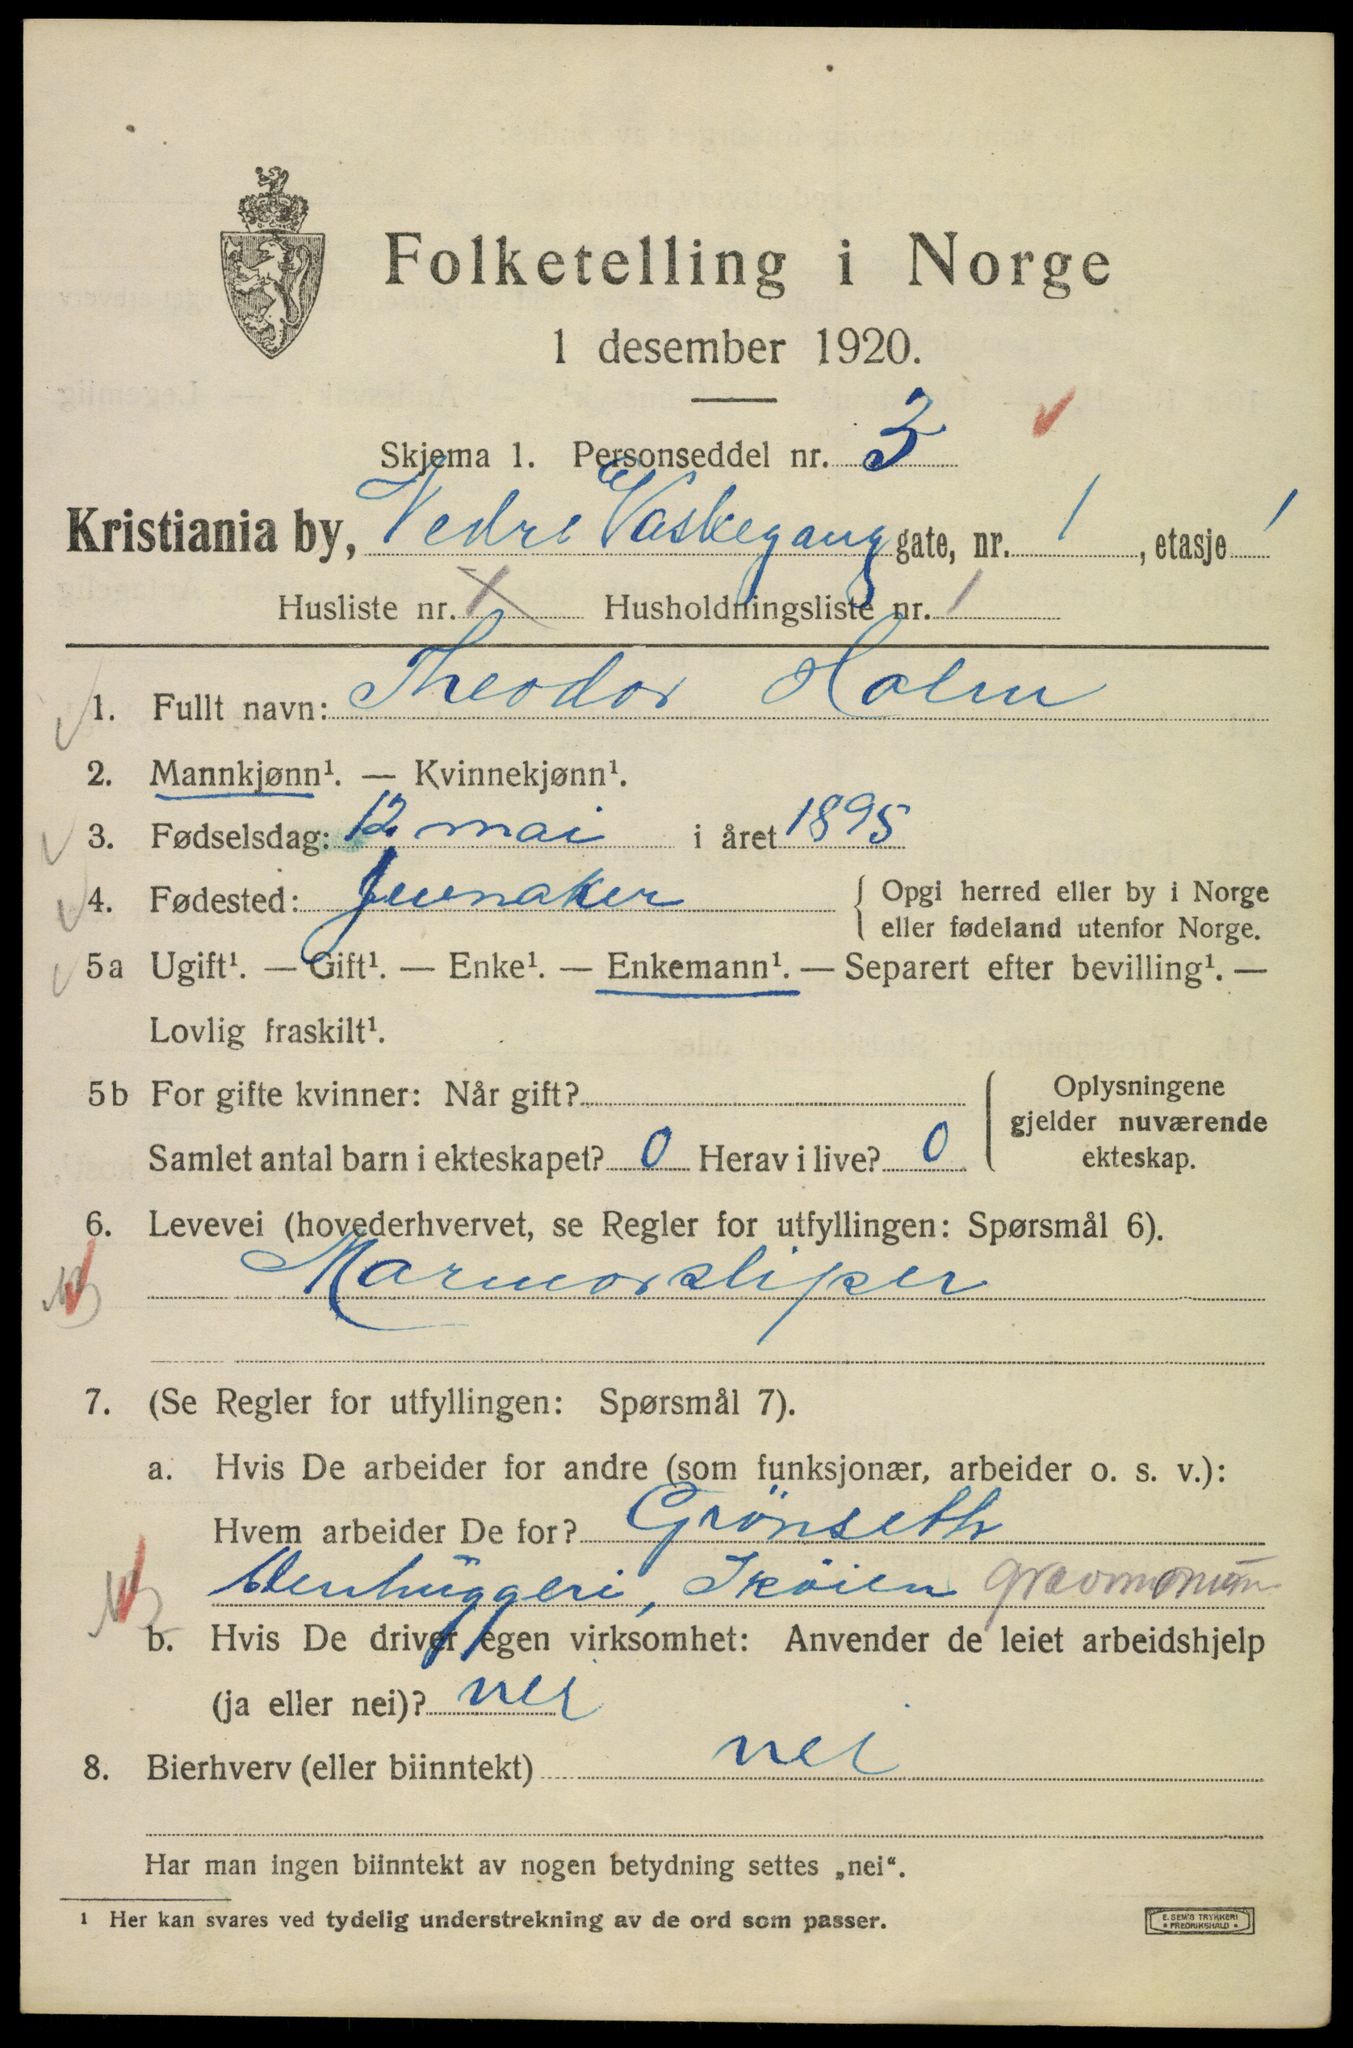 Folketelling i Norge
1 desember 1920.
Skjema 1. Personseddel nr. 3
Kristiania by, Nedre Vaskegang gate, nr. 1, etasje 1
Husliste nr. 1 Husholdningsliste nr. 1
1. Fullt navn: Theodor Holm
2. Mannkjønn¹. — Kvinnekjønn¹.
3. Fødselsdag: 12. mai i året 1895
4. Fødested: Jevnaker
{ Opgi herred eller by i Norge
eller fødeland utenfor Norge.
5a Ugift¹. — Gift¹. — Enke¹. — Enkemann¹. — Separert efter bevilling¹. —
Lovlig fraskilt¹.
5b For gifte kvinner: Når gift?
Samlet antal barn i ekteskapet? 0 Herav i live? 0
{ Oplysningene
gjelder nuværende
ekteskap.
6. Levevei (hovederhvervet, se Regler for utfyllingen: Spørsmål 6).
Marmorsliper
7. (Se Regler for utfyllingen: Spørsmål 7).
a. Hvis De arbeider for andre (som funksjonær, arbeider o. s. v.):
Hvem arbeider De for? Grönseth
Stenhuggeri, Sköien gravmonum
b. Hvis De driver egen virksomhet: Anvender de leiet arbeidshjelp
(ja eller nei)? nei
8. Bierhverv (eller biinntekt) nei
Har man ingen biinntekt av nogen betydning settes „nei“.
¹ Her kan svares ved tydelig understrekning av de ord som passer.
E. SEM'S TRYKKERI
FREDRIKSHALD